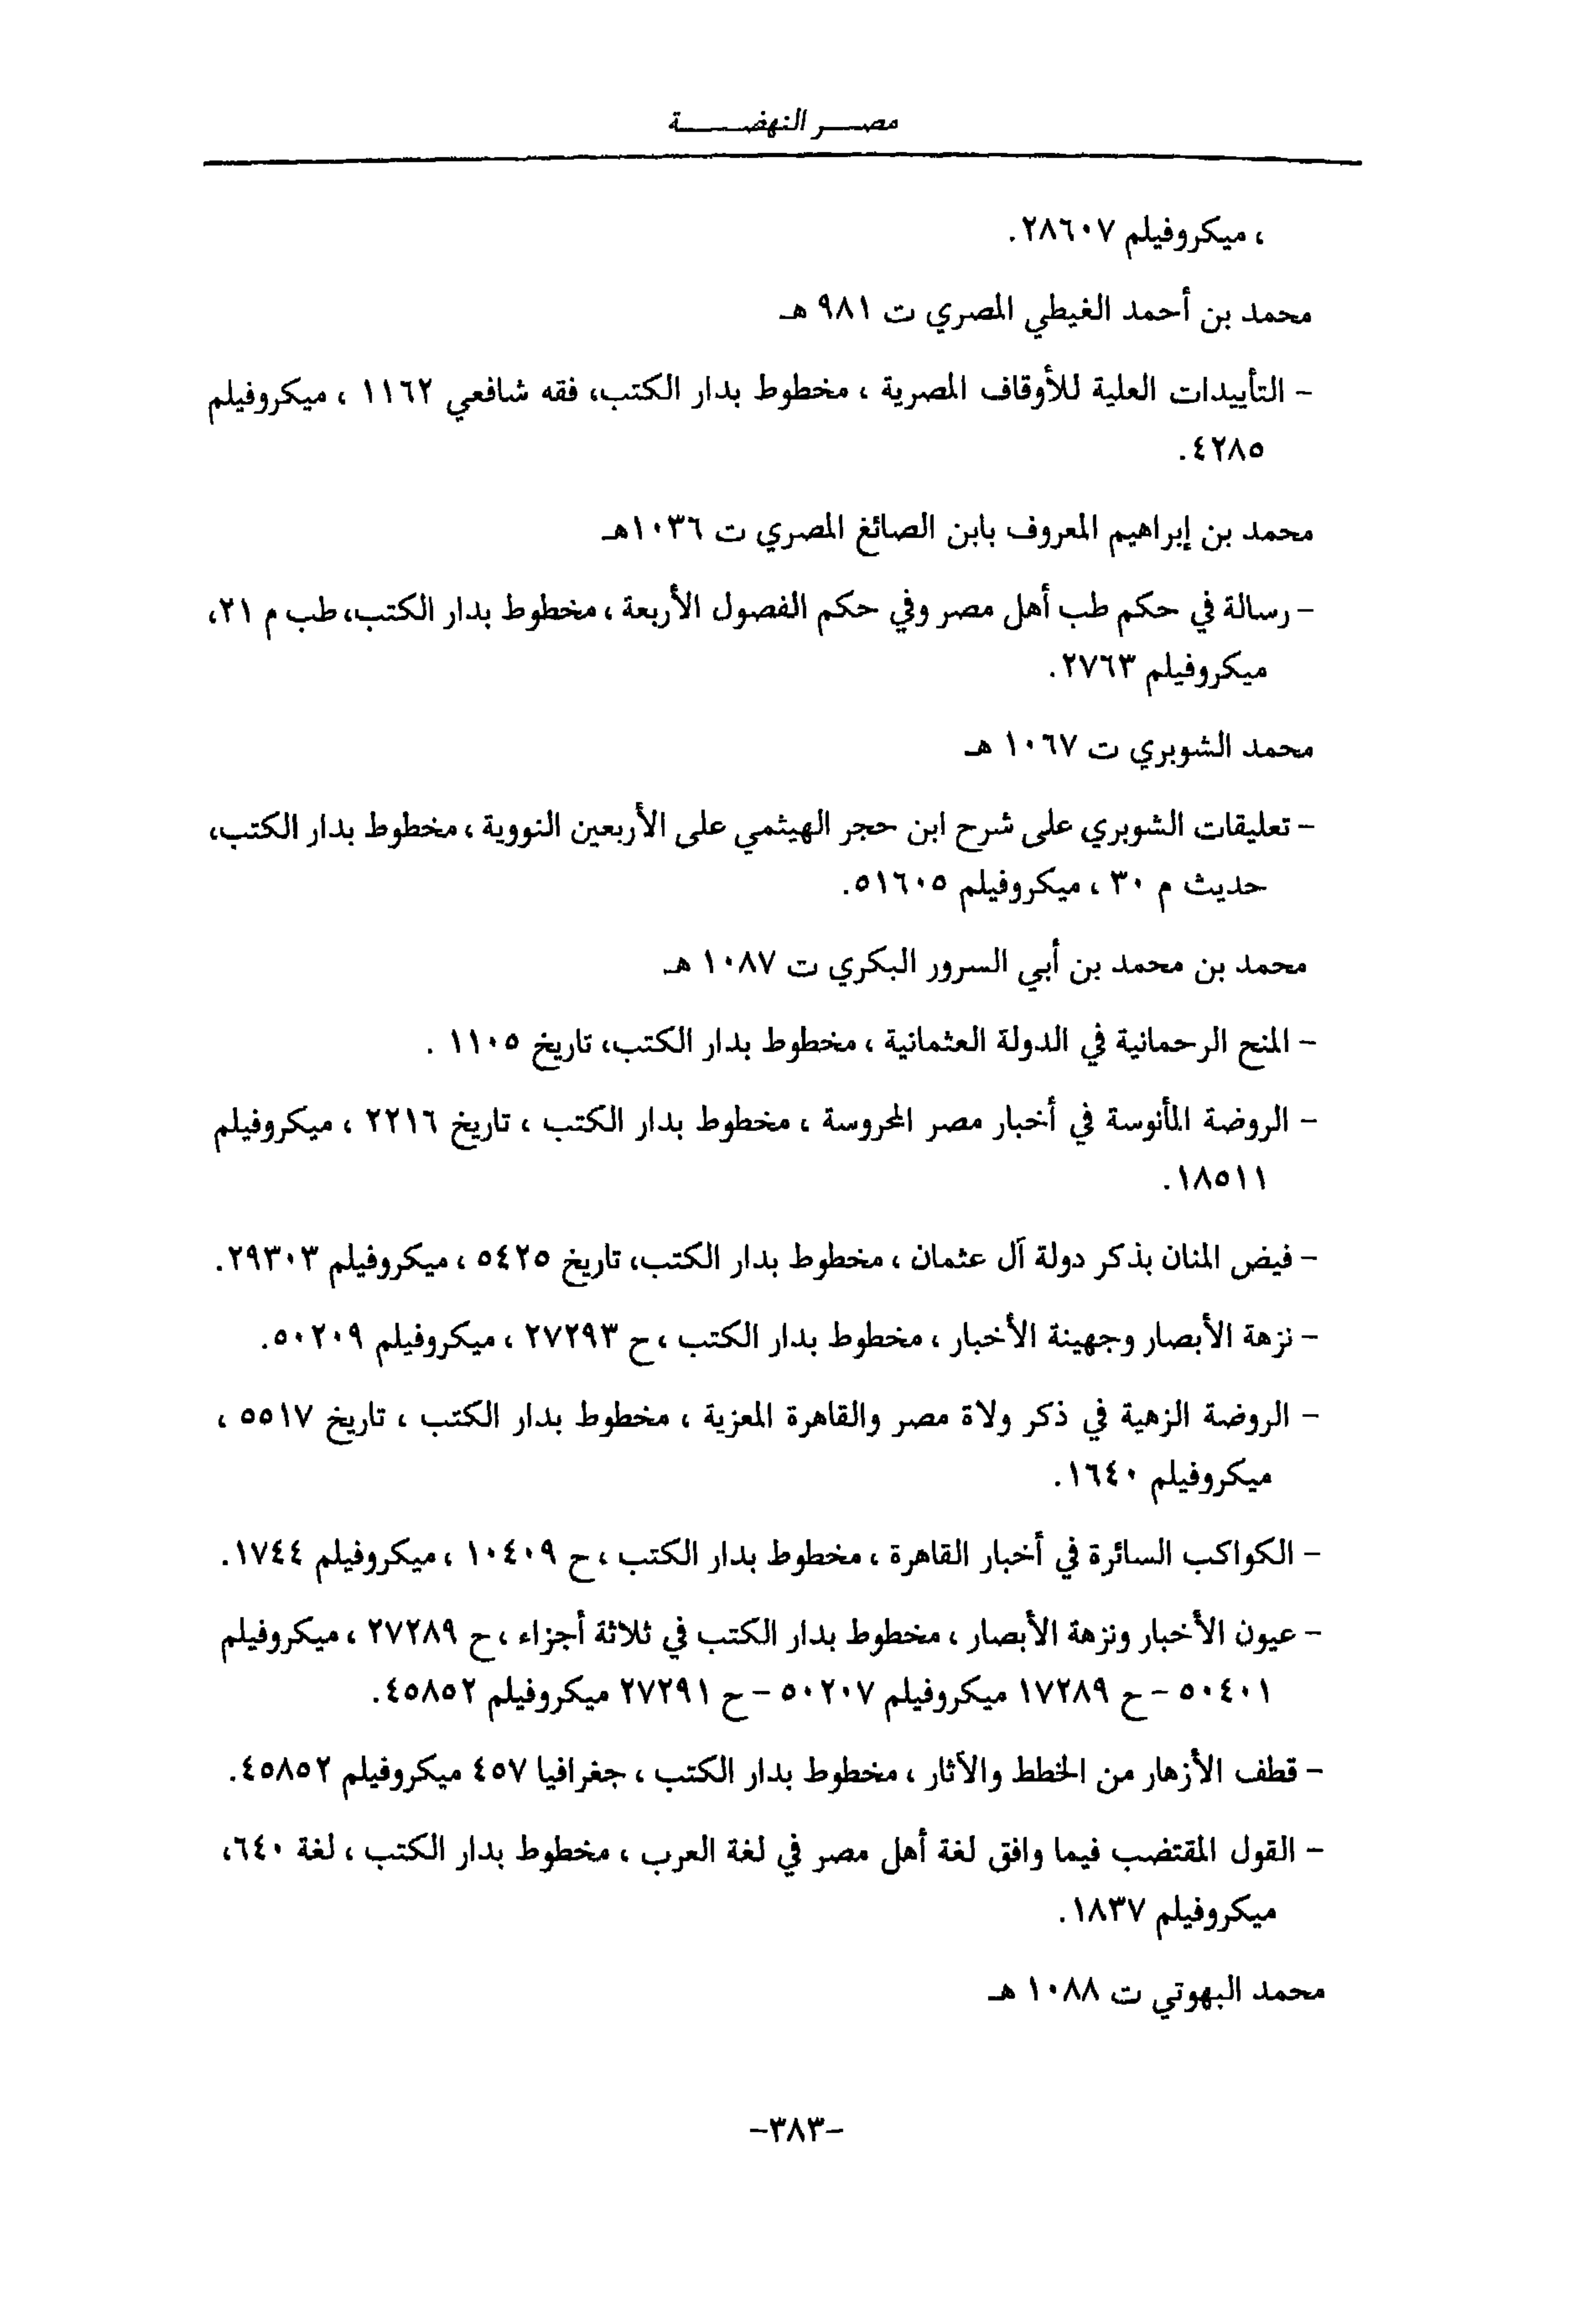 مصر النهضة
، ميكروفيلم ٢٨٦٠٧.
محمد بن أحمد الغيطي المصري ت ٩٨١ هـ
- التأييدات العلية للأوقاف المصرية ، مخطوط بدار الكتب، فقه شافعي ١١٦٢ ، ميكروفيلم
٤٢٨٥.
محمد بن إبراهيم المعروف بابن الصائغ المصري ت ١٠٣٦هـ
- رسالة في حكم طب أهل مصر وفي حكم الفصول الأربعة ، مخطوط بدار الكتب، طب م ٢١،
ميكروفيلم ٢٧٦٣.
محمد الشوبري ت ١٠٦٧ هـ
- تعليقات الشوبري على شرح ابن حجر الهيثمي على الأربعين النووية ، مخطوط بدار الكتب،
حديث م ٣٠ ، ميكروفيلم ٥١٦٠٥.
محمد بن محمد بن أبي السرور البكري ت ١٠٨٧ هـ
- المنح الرحمانية في الدولة العثمانية ، مخطوط بدار الكتب، تاريخ ١١٠٥ .
- الروضة المأنوسة في أخبار مصر المحروسة ، مخطوط بدار الكتب ، تاريخ ٢٢١٦ ، ميكروفيلم
١٨٥١١.
- فيض المنان بذكر دولة آل عثمان ، مخطوط بدار الكتب، تاريخ ٥٤٢٥ ، ميكروفيلم ٢٩٣٠٣.
- نزهة الأبصار وجهينة الأخبار ، مخطوط بدار الكتب ، ح ٢٧٢٩٣ ، ميكروفيلم ٥٠٢٠٩.
- الروضة الزهية في ذكر ولاة مصر والقاهرة المعزية ، مخطوط بدار الكتب ، تاريخ ٥٥١٧ ،
ميكروفيلم ١٦٤٠.
- الكواكب السائرة في أخبار القاهرة ، مخطوط بدار الكتب ، ح ١٠٤٠٩ ، ميكروفيلم ١٧٤٤.
- عيون الأخبار ونزهة الأبصار ، مخطوط بدار الكتب في ثلاثة أجزاء ، ح ٢٧٢٨٩ ، ميكروفيلم
٥٠٤٠١ - ح ١٧٢٨٩ ميكروفيلم ٥٠٢٠٧ - ح ٢٧٢٩١ ميكروفيلم ٤٥٨٥٢.
- قطف الأزهار من الخطط والآثار ، مخطوط بدار الكتب ، جغرافيا ٤٥٧ ميكروفيلم ٤٥٨٥٢.
- القول المقتضب فيما وافق لغة أهل مصر في لغة العرب ، مخطوط بدار الكتب ، لغة ٦٤٠،
ميكروفيلم ١٨٣٧.
محمد البهوتي ت ١٠٨٨ هـ
-٣٨٣-